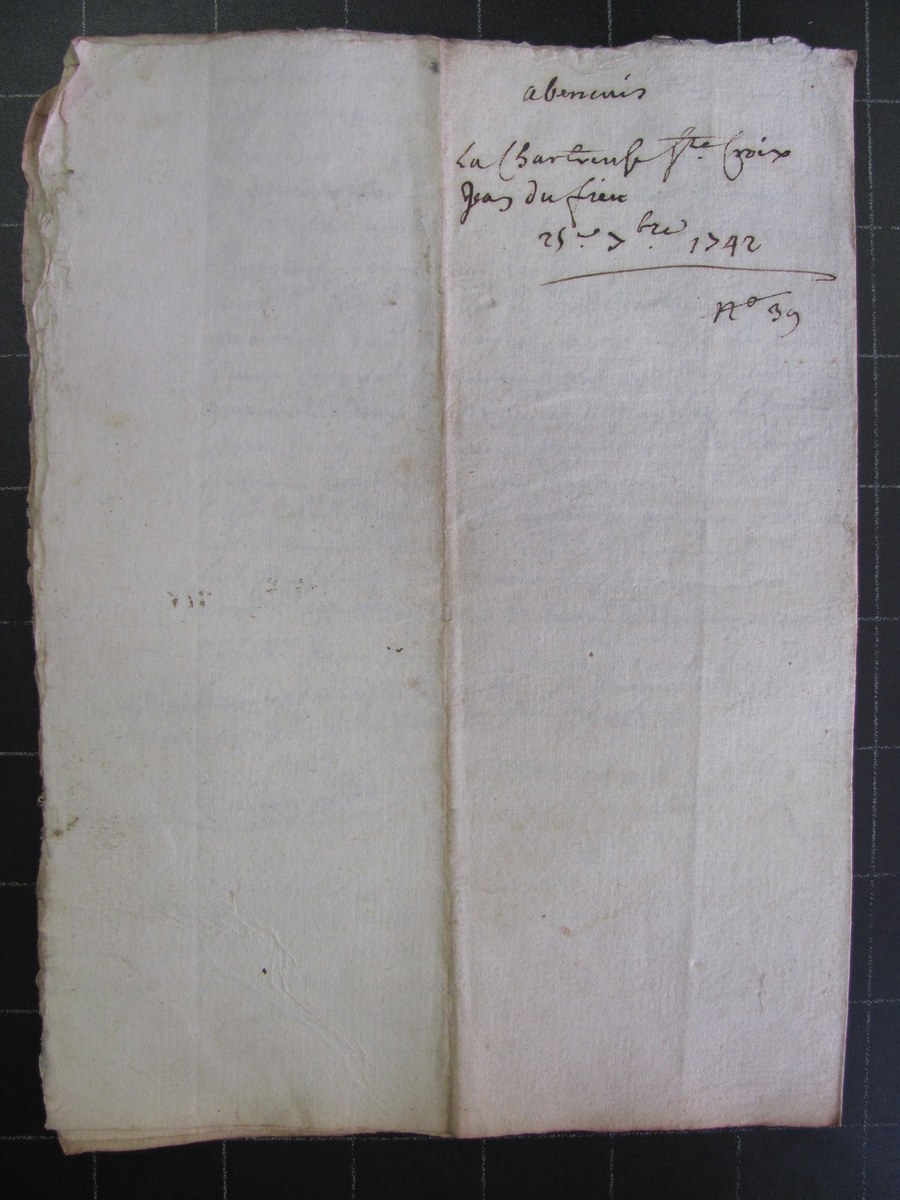 abenevis
La Chartreuse Ste Croix
Jean du fieu
25e 7bre 1742
No 39